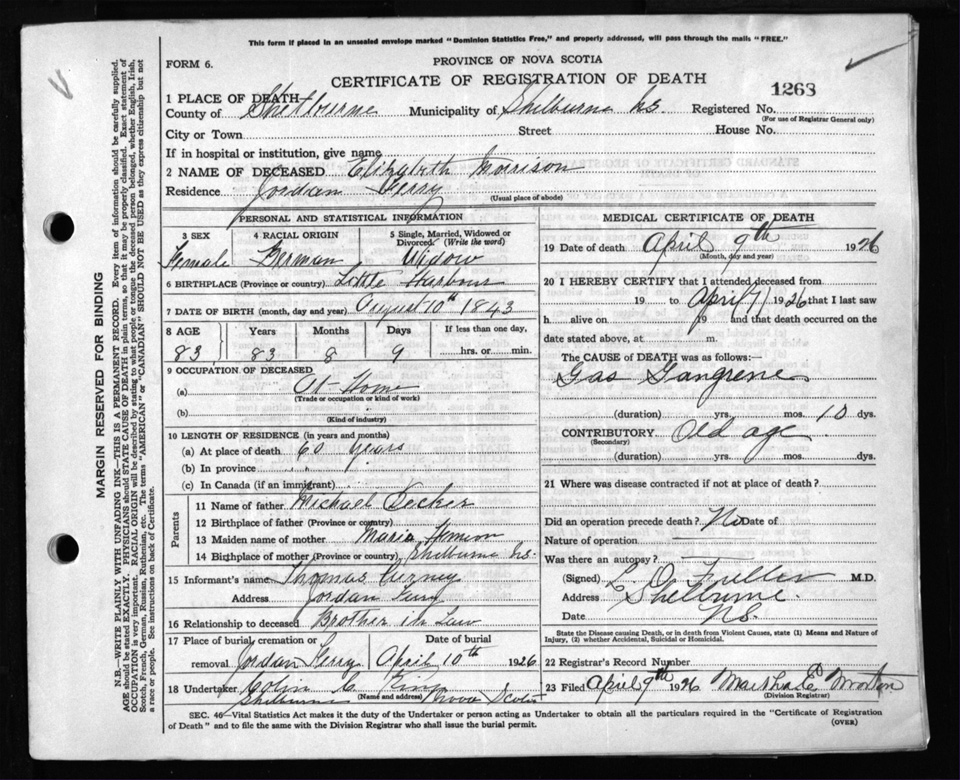 This form if placed in an unsealed envelope marked "Dominion Statistics Free," and properly addressed, will pass through the mails "FREE."
FORM 6.
PROVINCE OF NOVA SCOTIA
CERTIFICATE OF REGISTRATION OF DEATH
1268
1 PLACE OF DEATH
County of Shelburne Municipality of Shelburne NS. Registered No.
(For use of Registrar General only)
City or Town Street House No.
If in hospital or institution, give name
2 NAME OF DECEASED Elizabeth Morrison
Residence Jordan Ferry
(Usual place of abode)
PERSONAL AND STATISTICAL INFORMATION
3 SEX 4 RACIAL ORIGIN 5 Single, Married, Widowed or Divorced (Write the word)
Female German Widow
6 BIRTHPLACE (Province or country) Little Harbour
7 DATE OF BIRTH (month, day and year) August 10th 1843
8 AGE Years Months Days If less than one day,
83 83 8 9 hrs. or min.
9 OCCUPATION OF DECEASED
(a) At Home
(Trade or occupation or kind of work)
(b)
(Kind of industry)
10 LENGTH OF RESIDENCE (in years and months)
(a) At place of death 60 years
(b) In province
(c) In Canada (if an immigrant)
Parents
11 Name of father Michael Decker
12 Birthplace of father (Province or country)
13 Maiden name of mother Maria
14 Birthplace of mother (Province or country) Shelburne NS.
15 Informant's name Thomas
Address Jordan Ferry
16 Relationship to deceased Brother in Law
17 Place of burial, cremation or Date of burial
removal Jordan Ferry April 10th 1926
18 Undertaker Colin C King
(Name and address)
Shelburne Nova Scotia
MEDICAL CERTIFICATE OF DEATH
19 Date of death April 9th 1926
(Month, day and year)
20 I HEREBY CERTIFY that I attended deceased from
19 to April 7/ 1926 that I last saw
h alive on 19 and that death occurred on the
date stated above, at m.
The CAUSE of DEATH was as follows:
Gas Gangrene
(duration) yrs. mos. 10 dys.
CONTRIBUTORY Old age
(Secondary)
(duration) yrs. mos. dys.
21 Where was disease contracted if not at place of death?
Did an operation precede death? No Date of
Nature of operation
Was there an autopsy?
(Signed) L. O. Fuller M.D.
Address Shelburne
Date N.S.
State the Disease causing Death, or in death from Violent Causes, state (1) Means and Nature of
Injury, (2) whether Accidental, Suicidal or Homicidal.
22 Registrar's Record Number
23 Filed April 9th 1926 Martha E
(Division Registrar)
SEC. 46—Vital Statistics Act makes it the duty of the Undertaker or person acting as Undertaker to obtain all the particulars required in the "Certificate of Registration
of Death" and to file the same with the Division Registrar who shall issue the burial permit.
(OVER)
MARGIN RESERVED FOR BINDING
N.B.—WRITE PLAINLY WITH UNFADING INK—THIS IS A PERMANENT RECORD. Every item of information should be carefully supplied.
AGE should be stated EXACTLY. PHYSICIANS should STATE CAUSE OF DEATH in plain terms, so that it may be properly classified. Exact statement of
OCCUPATION is very important. RACIAL ORIGIN will be described by stating to what people or tongue the deceased person belonged, whether English, Irish,
Scotch, French, German, Russian, Ruthenian, etc. The terms "AMERICAN" or "CANADIAN" SHOULD NOT BE USED as they express citizenship but not
a race or people. See instructions on back of Certificate.